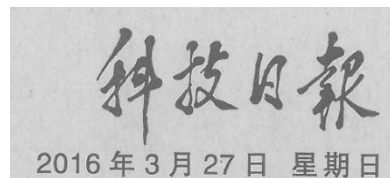 科技日報
2016年3月27日 星期日